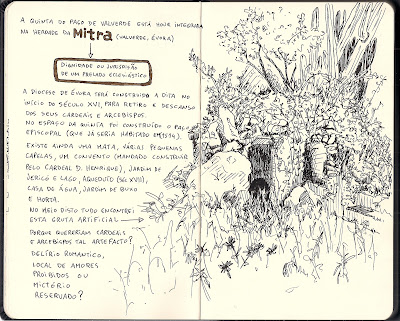 A QUINTA DO PAÇO DE VALVERDE ESTÁ HOJE INTEGRADA
NA HERDADE DA Mitra (VALVERDE, ÉVORA)
DIGNIDADE OU JURISDIÇÃO
DE UM PRELADO ECLESIÁSTICO
A DIOCESE DE ÉVORA TERÁ CONSTRUÍDO A DITA NO
INÍCIO DO SÉCULO XVI, PARA RETIRO E DESCANSO
DOS SEUS CARDEAIS E ARCEBISPOS.
NO ESPAÇO DA QUINTA FOI CONSTRUÍDO O PAÇO
EPISCOPAL (QUE JÁ SERIA HABITADO EM 1514).
EXISTE AINDA UMA MATA, VÁRIAS PEQUENAS
CAPELAS, UM CONVENTO (MANDADO CONSTRUIR
PELO CARDEAL D. HENRIQUE), JARDIM DE
JERICÓ E LAGO, AQUEDUTO (SÉC XVII),
CASA DE ÁGUA, JARDIM DE BUXO
E HORTA.
NO MEIO DISTO TUDO ENCONTREI
ESTA GRUTA ARTIFICIAL
PORQUE QUERERIAM CARDEAIS
E ARCEBISPOS TAL ARTEFACTO?
DELÍRIO ROMÂNTICO,
LOCAL DE AMORES
PROIBIDOS OU
MICTÉRIO
RESERVADO?